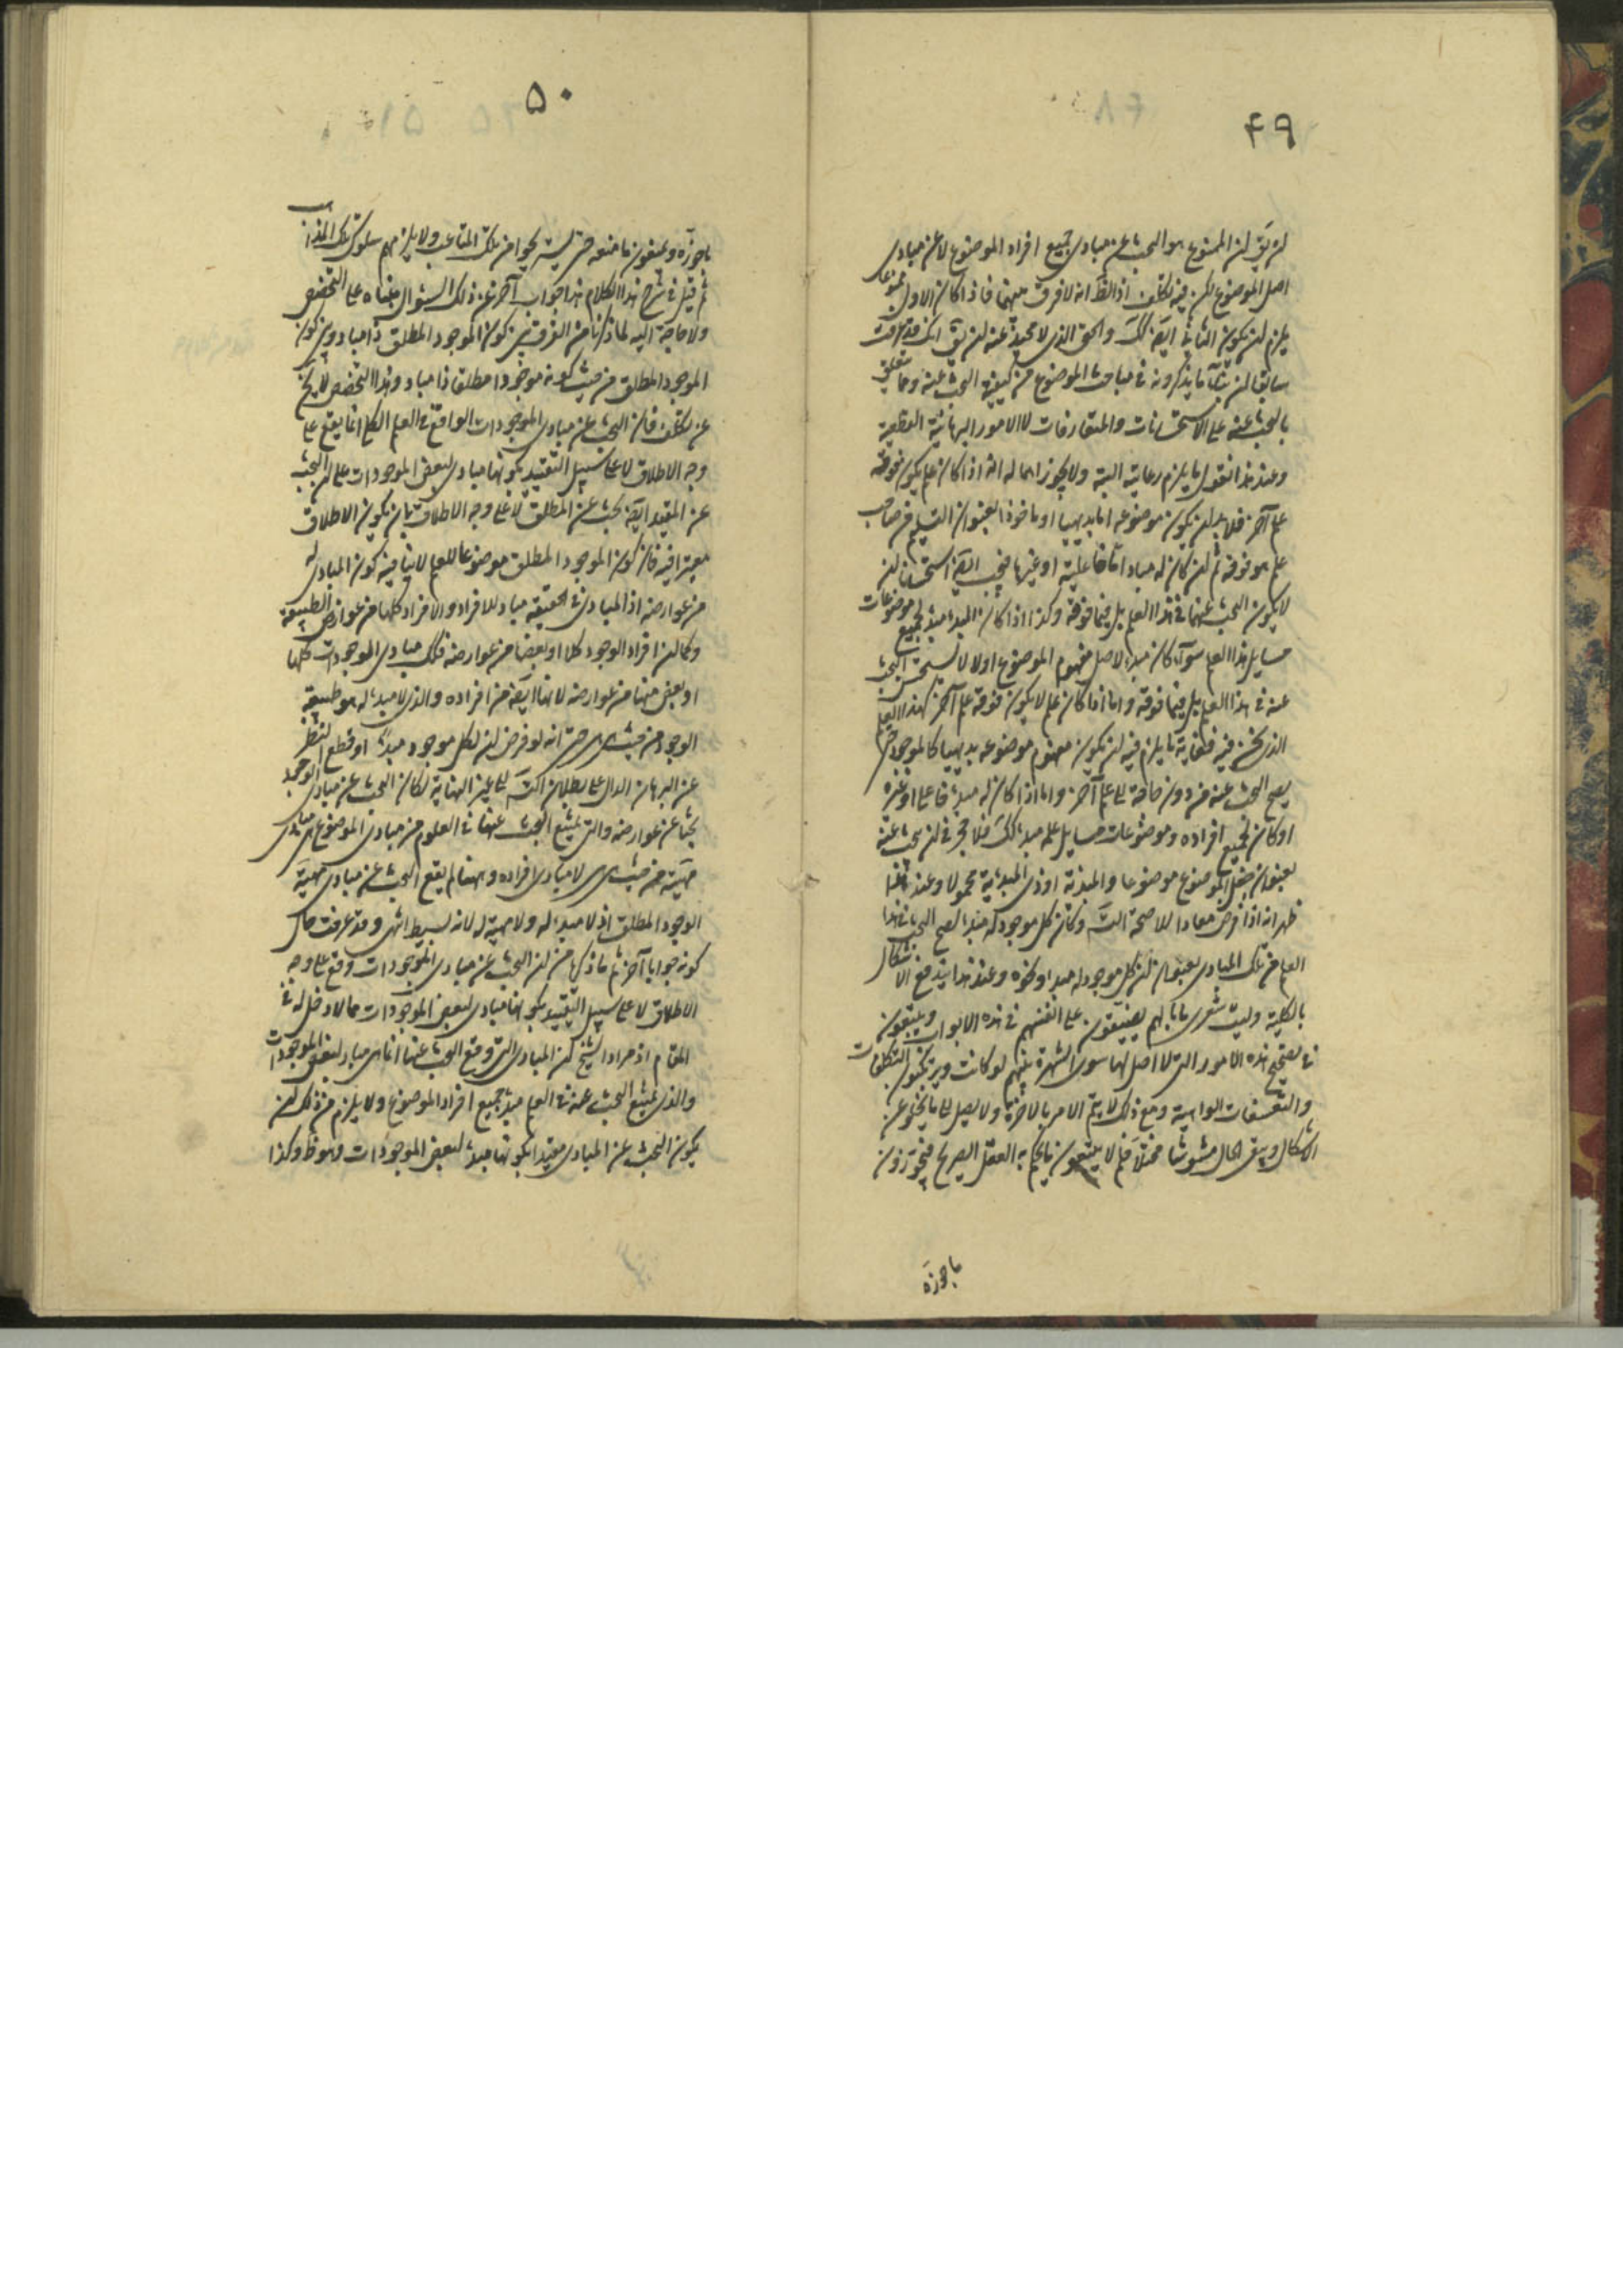 ۴۹
لن يق لن الممنوع هو البحث عن مبادى جميع افراد الموضوع لا عن مبادى
اصل الموضوع لكن فيه تكلف اذ الظ انه لا فرق بينهما فاذا كان الاول ممنوعا
يلزم لن يكون الثانى ايض كك والحق الذى لا محيد عنه لن يق انك قد عرفت
سابقا لن بناء ما يذكرونه فى مباحث الموضوع من كيفية البحث عنه وما يتعلق
بالبحث عنه على الاستحسانات والمتعارفات لا الامور البرهانية القطعية
وعند هذا نقول ما يلزم رعايته البتة ولا يجوز اهماله انه اذا كان علم يكون فوقه
علم آخر فلا بد لن يكون موضوعه اما بديهيا او ماخوذا بعنوان التسليم من صاحب
علم هو فوقه ثم لن كان له مباد اما فاعلية او غيرها فيجب ايض استحسانا لن
لا يكون البحث عنها فى هذا العلم بل فيما فوقه وكذا اذا كان المبدء مبدء لجميع موضوعات
مسايل هذا العلم سواء كان مبدء لاصل مفهوم الموضوع اولا لا يستحسن البحث
عنه فى هذا العلم بل فيما فوقه واما اذا كان علم لا يكون فوقه علم آخر كهذا العلم
الذى نحن فيه فغاية ما يلزم فيه لن يكون مفهوم موضوعه بديهيا كالموجود حتى
يصح البحث عنه من دون حاجة الى علم آخر واما اذا كان له مبدء فاعلى او غيره
او كان لجميع افراده وموضوعات مسايل علمه مبدء كك فلا حجر فى لن يبحث عنه
بعنوان جعل الموضوع موضوعا والمبدئية او ذى المبدئية محمولا وعند هذا
ظهر انه اذا فرض معادا للا صحة الت وكان كل موجود له مبدء لصح البحث فى هذا
العلم عن تلك المبادى بعنوان لن كل موجود له مبدء ونحوه وعند هذا يندفع الاشكال
بالكلية وليت شعرى ما بالهم يضيقون على انفسهم فى هذه الابواب ويتعبون
فى تصحيح هذه الامور التى لا اصل لها سوى الشهرة بينهم لو كانت ويرتكبون التكلفات
والتعسفات الواهية ومع ذلك لا يتم الامر بالاخرة ولا يصل الى ما يخلو عن
الاشكال ويبقى الحال مشوشا مختلا فلم لا يتبعون ما يحكم به العقل الصريح فيجوزون
ما جوزه
۵۰
ما جوزه ويمنعون ما منعه حتى يستريحوا من تلك المتاعب ولا يلزمهم سلوك تلك المذاهب
ثم قيل فى شرح هذا الكلام هذا جواب آخر عن ذلك السؤال مبناه على التخصص
ولا حاجة اليه لما ذكرنا من الفرق بين كون الموجود المطلق ذا مباد وبين كون
الموجود المطلق من حيث كونه موجودا مطلقا ذا مباد وهذا التخصص لا يخ
عن تكلف فان البحث عن مبادى الموجودات الواقع فى العلم الكلى انما يقع على
وجه الاطلاق لا على سبيل التقييد بكونها مبادى لبعض الموجودات على لن البحث
عن المقيد ايض بحث عن المطلق لا على وجه الاطلاق بان يكون الاطلاق
معتبرا فيه فان كون الموجود المطلق موضوعا للعلم لا ينافيه كون المبادى له
من عوارضه اذ المبادى فى الحقيقة مباد للافراد والافراد كلها من عوارض الطبيعة
وكما لن افراد الوجود كلا او بعضا من عوارضه فكك مبادى الموجودات كلها
او بعض منها من عوارضه لانها ايض من افراده والذى لا مبدء له هو طبيعة
الوجود من حيث هى هى حتى انه لو فرض لن لكل موجود مبدء او قطع النظر
عن البرهان الدال على بطلان التس الى غير النهاية لكان البحث عن مبادى الوجود
بحثا عن عوارضه والتى يمتنع البحث عنها فى العلوم من مبادى الموضوع هى مبادى
مهيته من حيث هى هى لا مبادى افراده وههنا لم يقع البحث عن مبادى مهية
الوجود المطلق اذ لا مبدء له ولا مهية له لانه بسيط انتهى وقد عرفت حال
كونه جوابا آخر ثم ما ذكره من لن البحث عن مبادى الموجودات وقع على وجه
الاطلاق لا على سبيل التقييد بكونها مبادى لبعض الموجودات مما لا دخل له فى
المقام اذ مراد الشيخ لن المبادى التى وقع البحث عنها انما هى مباد لبعض الموجودات
والذى يمتنع البحث عنه فى العلم مبدء جميع افراد الموضوع ولا يلزم من ذلك لن
يكون البحث عن المبادى مقيدا بكونها مبدء لبعض الموجودات وهو ظ وكذا